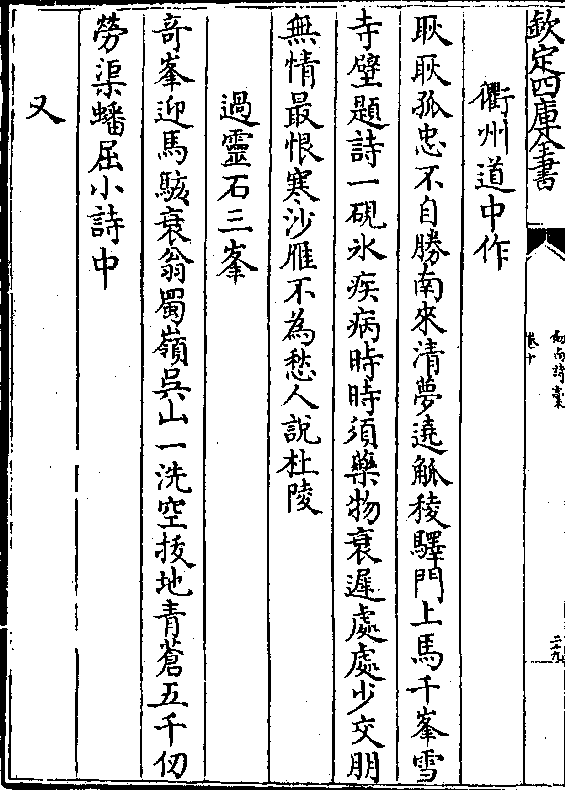 欽定四庫全書
劍南詩稾
卷十
二十九
衢州道中作
耿耿孤忠不自勝南來清夢遶觚稜驛門上馬千峯雪
寺壁題詩一硯氷疾病時時須藥物衰遲處處少交朋
無情最恨寒沙雁不為愁人說杜陵
過靈石三峯
奇峯迎馬駭衰翁蜀嶺吳山一洗空拔地青蒼五千仞
勞渠蟠屈小詩中
又